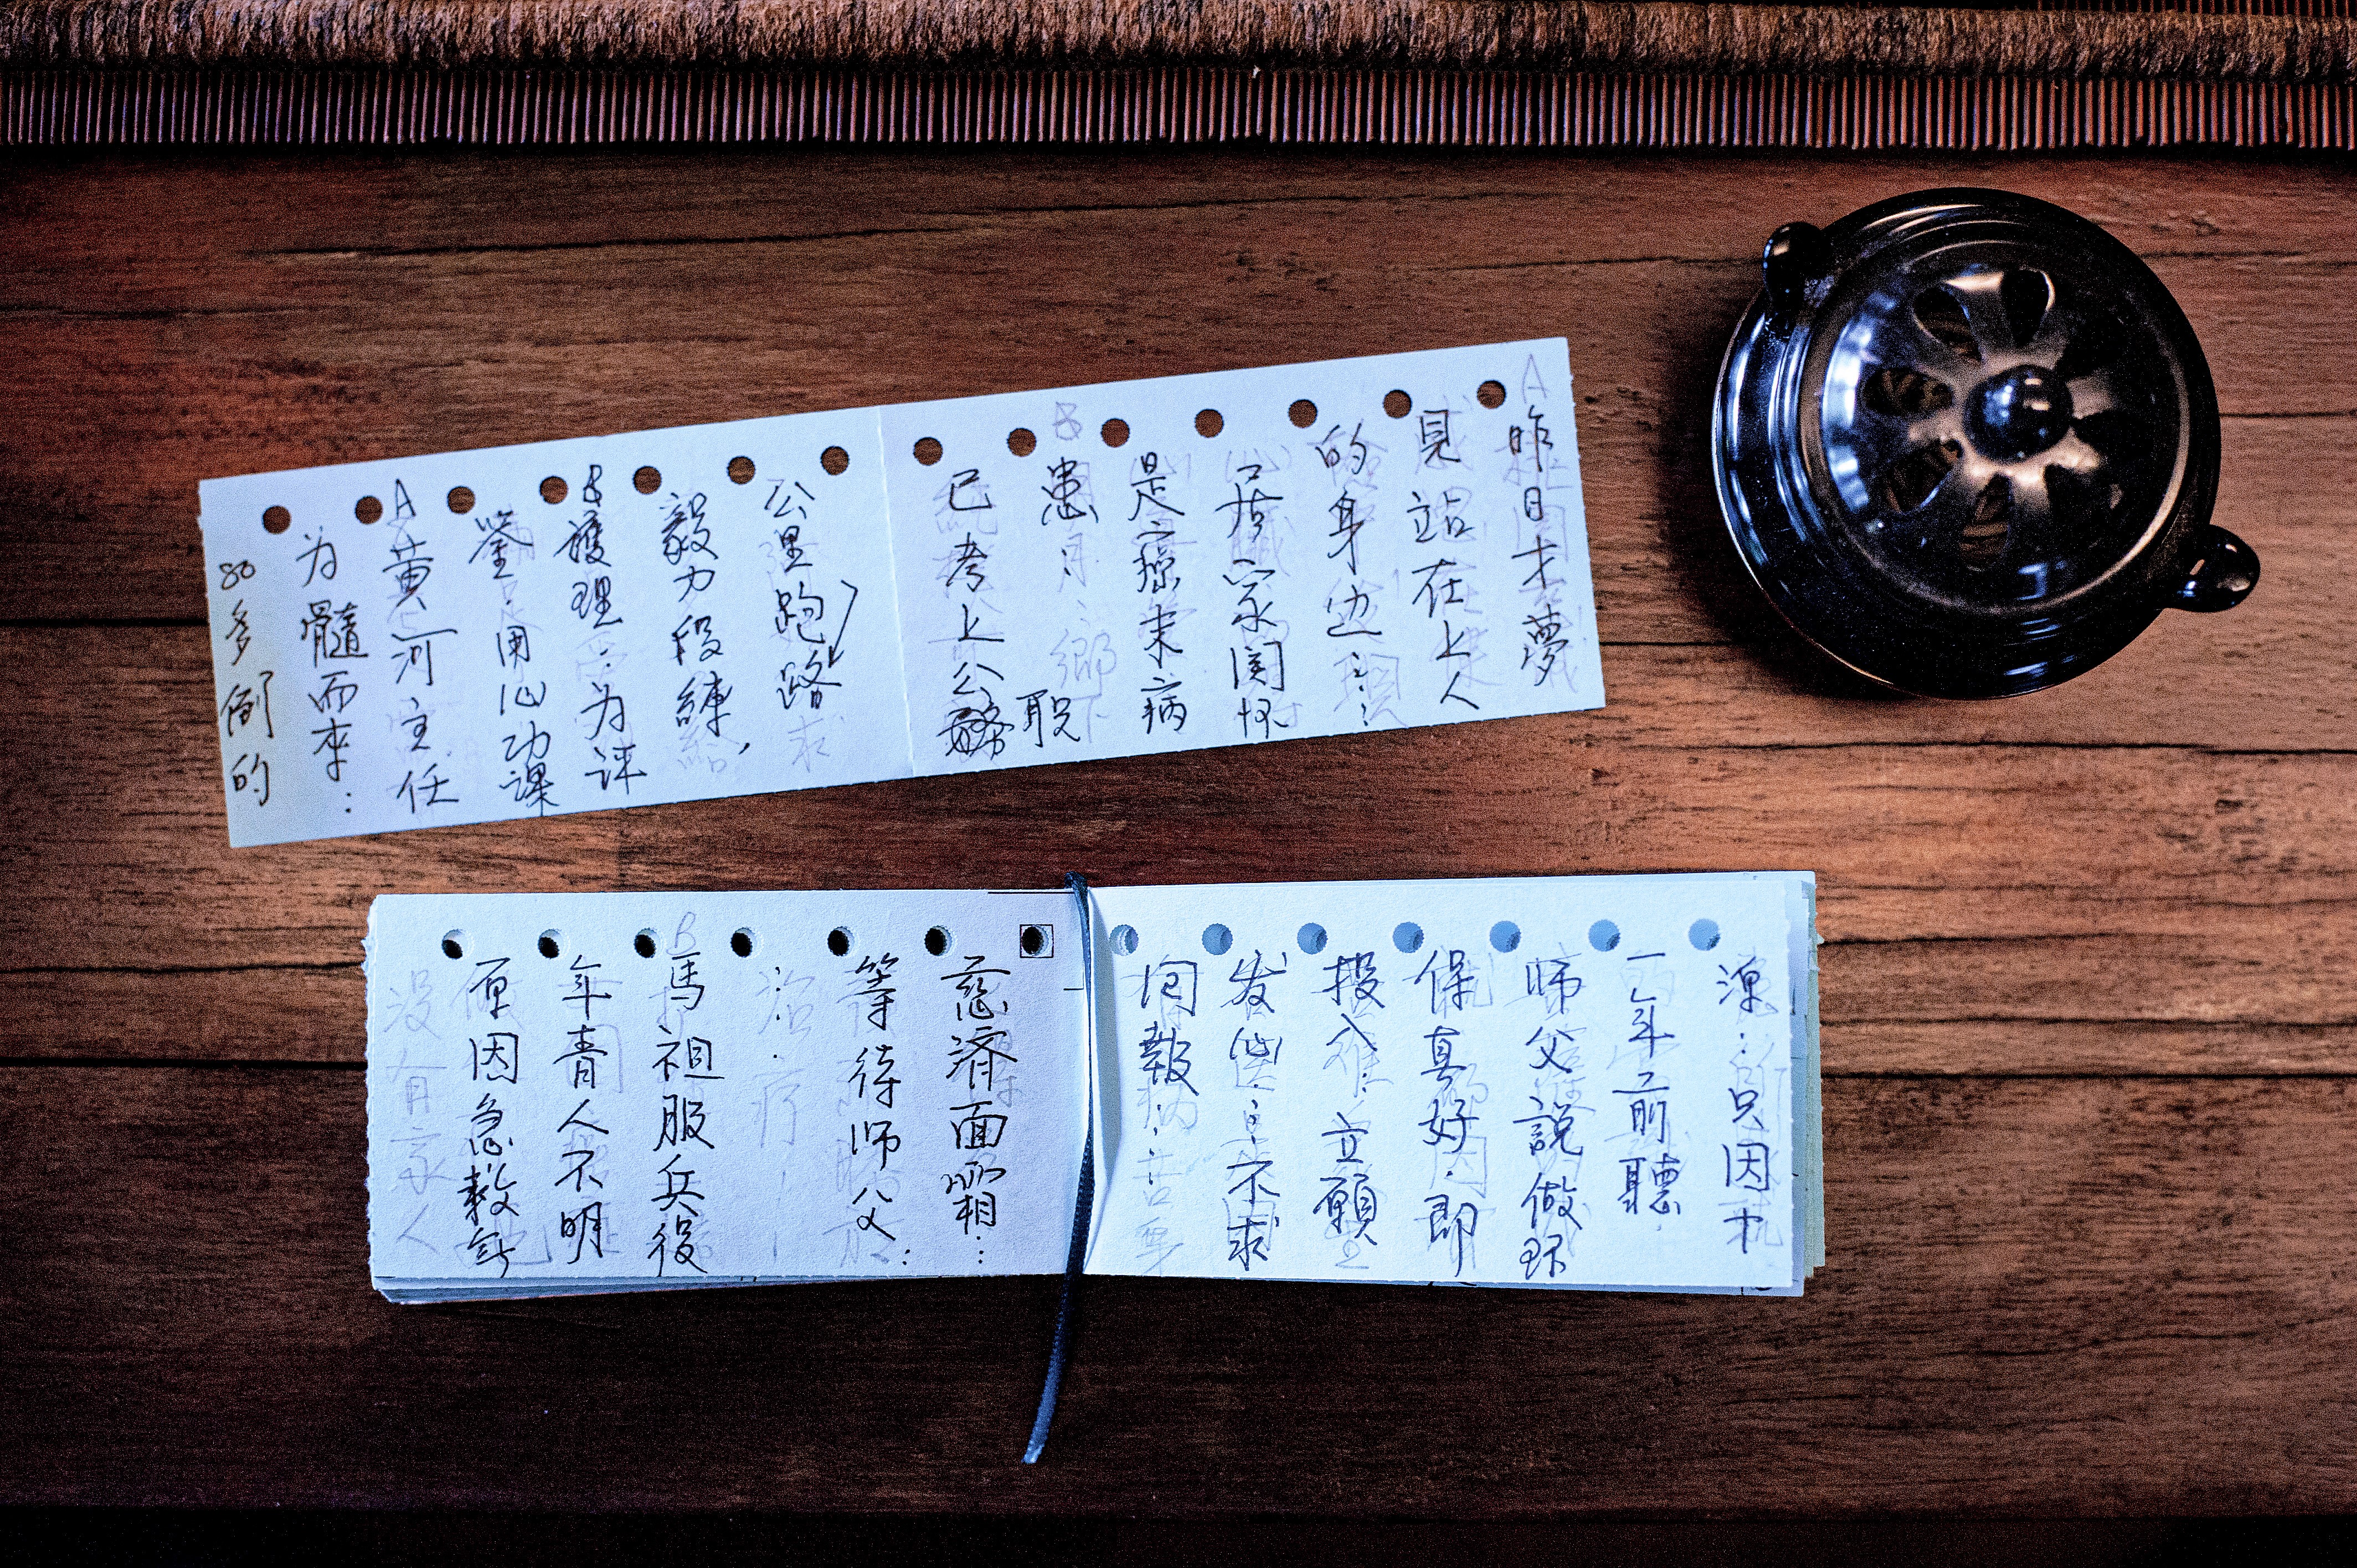 A
昨日才夢
見站在上人
的身边……
居家関怀
是瘀末病
患：
已考上公務
職
公里跑路
毅力段練，
B
護理．为评
鉴．用心功課
A
黄河主任
为髓而來：
80多個的
源：只因十
一年前聽
师父說做环
保真好．即
投入．立願
发心：不求
回報：
慈濟面霜：
等待师父：
B
馬祖服兵役
年青人不明
原因急救